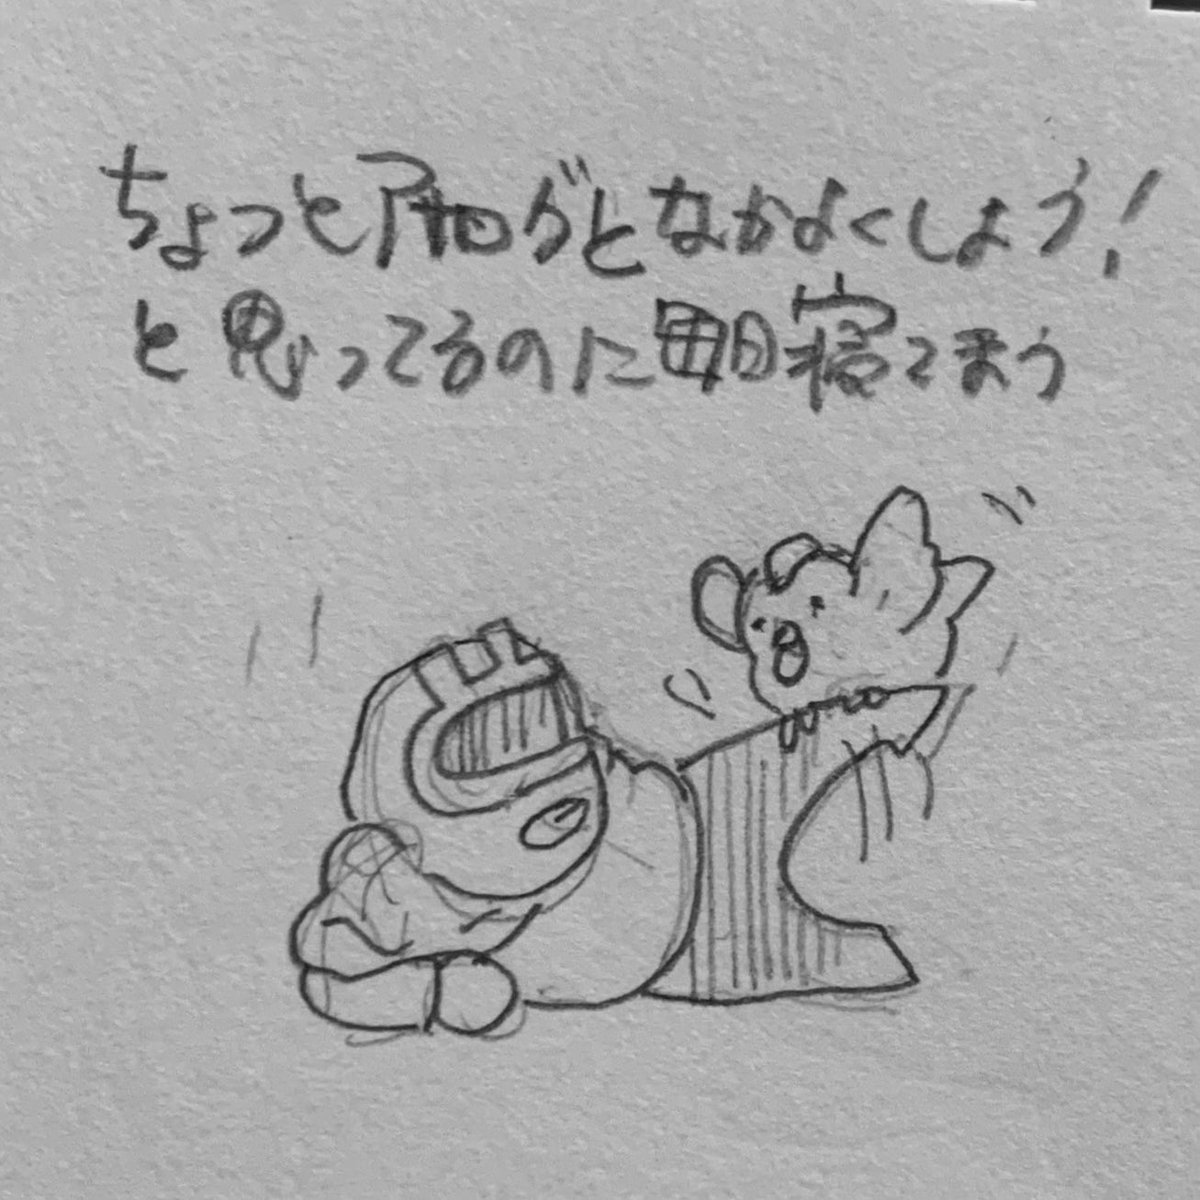 ちょっとアナログとなかよくしよう!
と思ってるのに毎日寝てまう